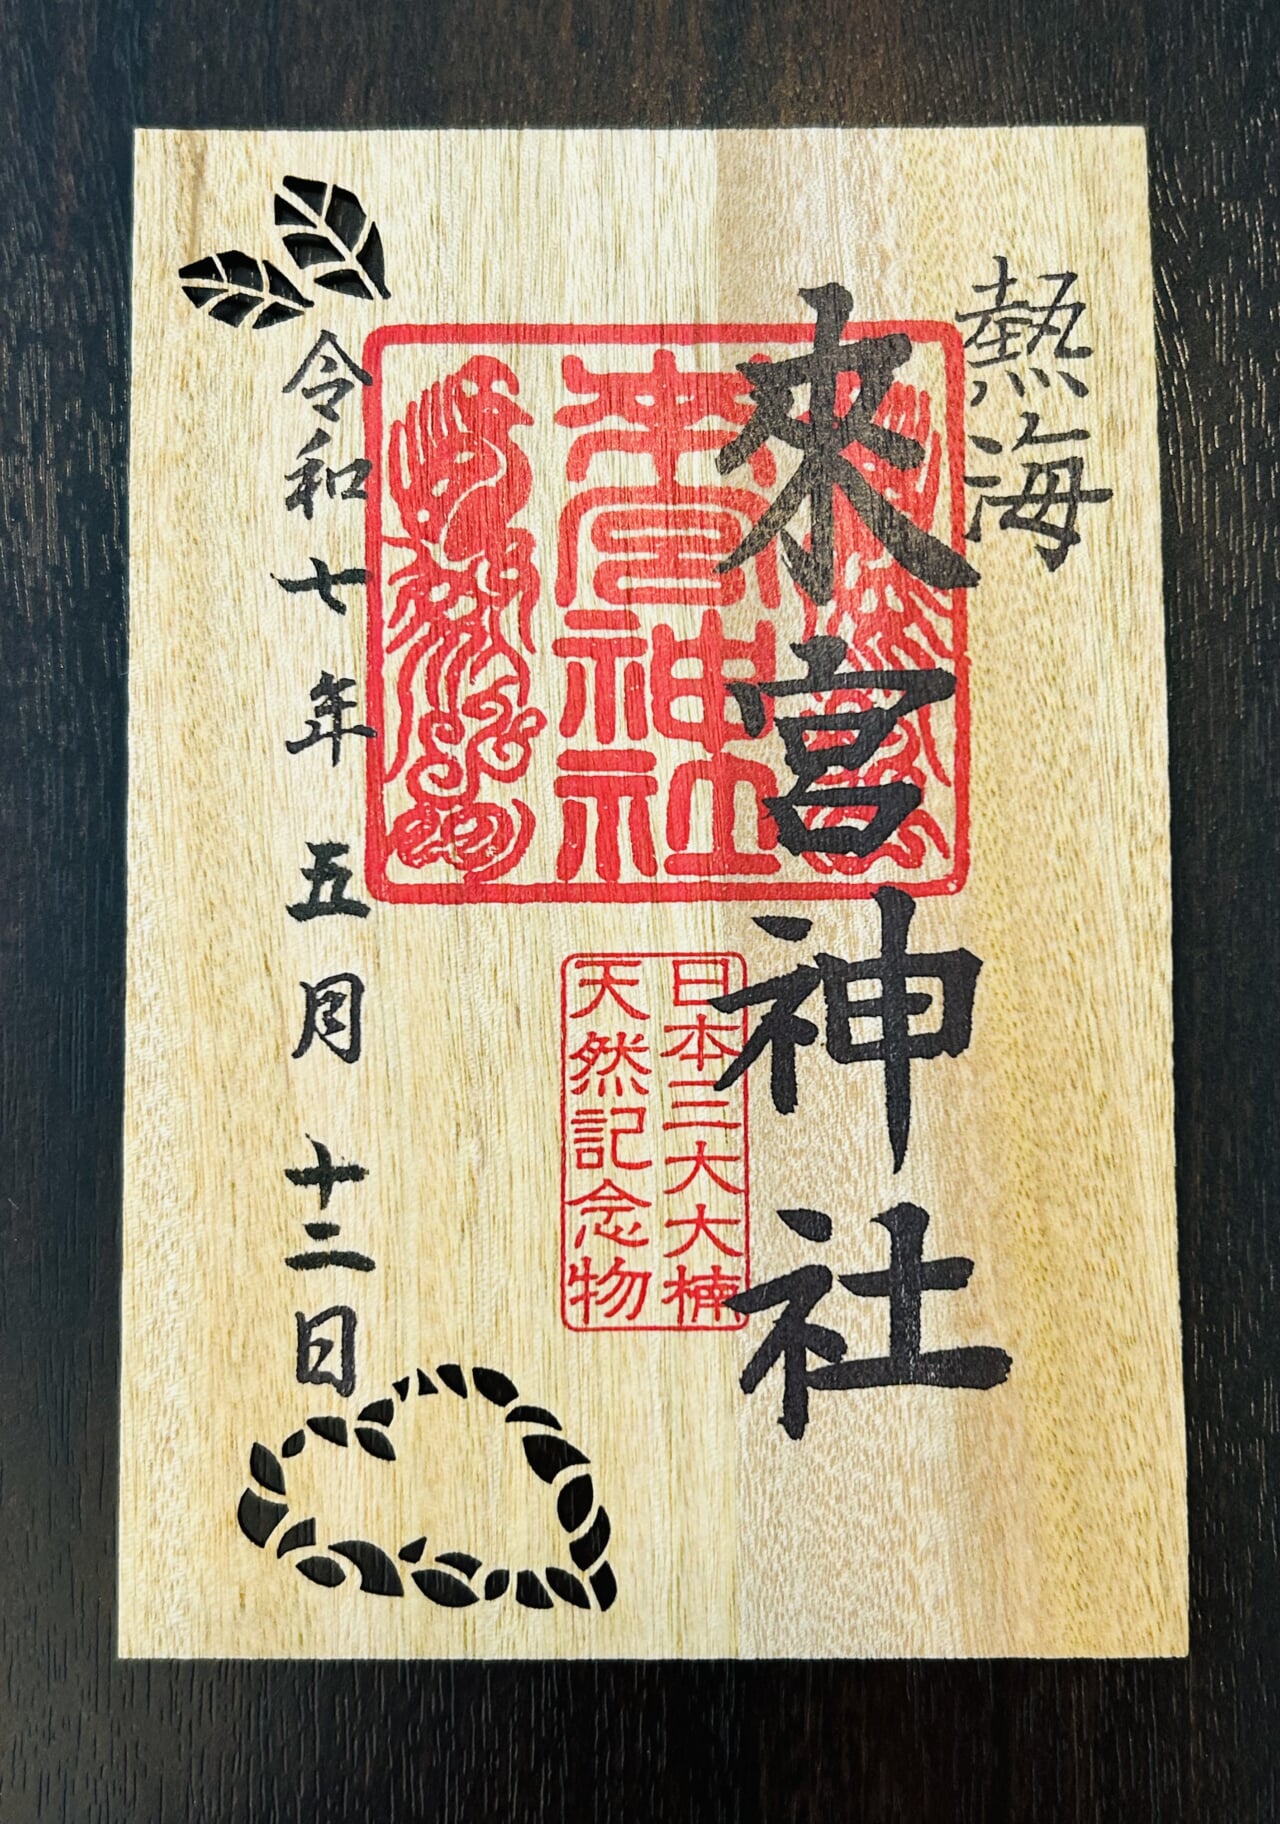 熱海
來宮神社
來宮神社
日本三大大楠
天然記念物
令和七年五月十二日